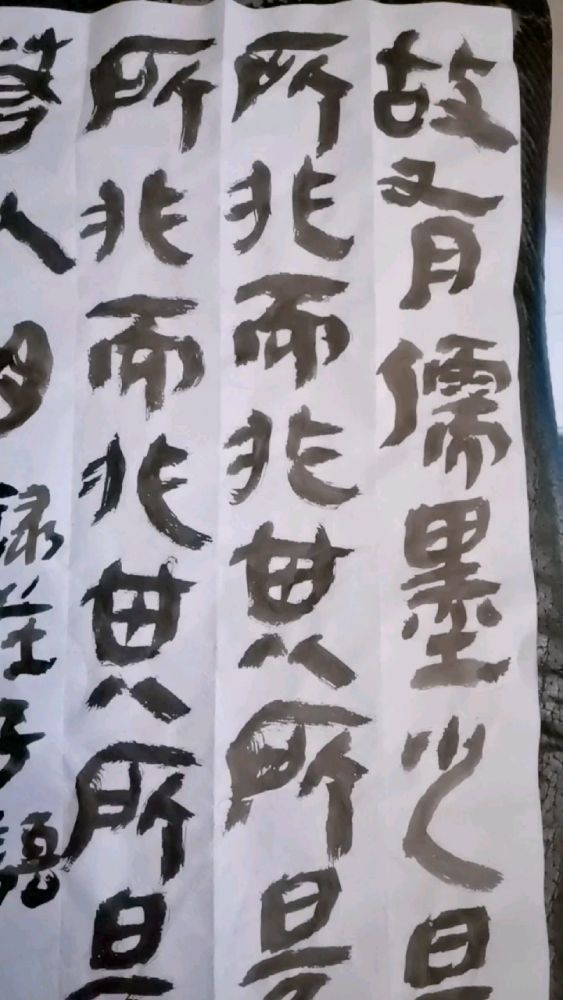 故有儒墨之是
所非而非其所是
所非而非其所是
若以明 録莊子語